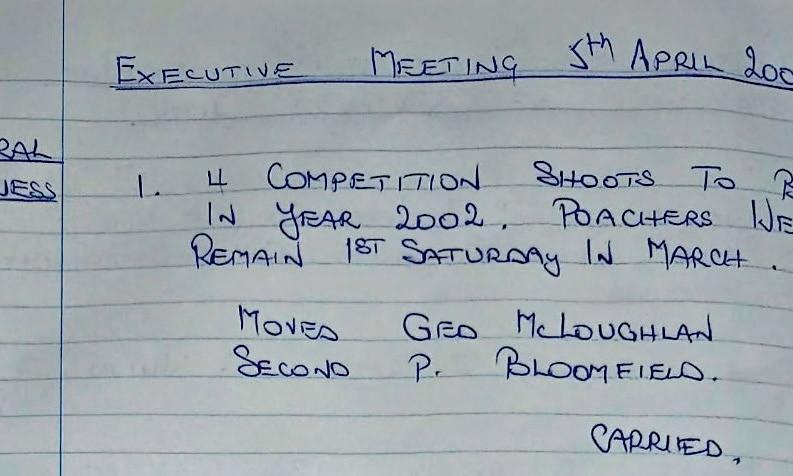 EXECUTIVE MEETING 5th APRIL 200
RAL
NESS
1. 4 COMPETITION SHOOTS TO
IN YEAR 2002. POACHERS WE
REMAIN 1ST SATURDAY IN MARCH.
MOVED GEO McLOUGHLAN
SECOND P. BLOOMFIELD.
CARRIED.